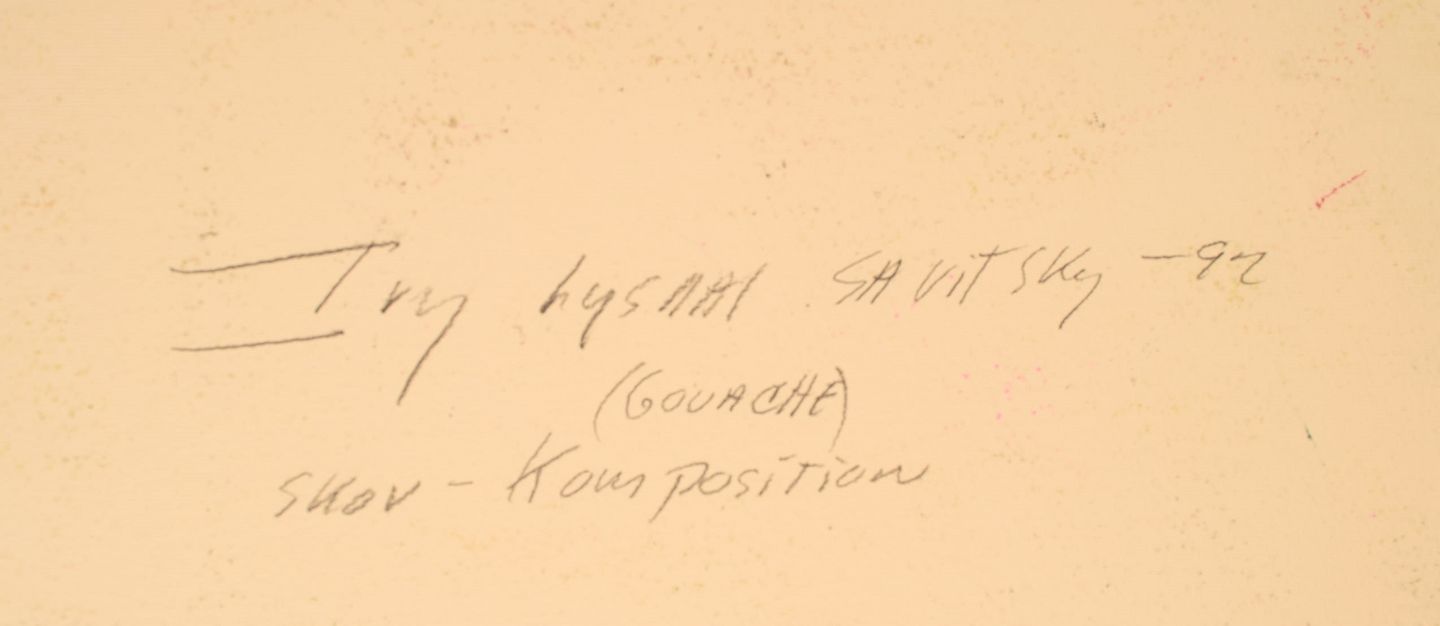 Ivy Lysdal SAVITSKY -92
(GOUACHE)
SKOV - Komposition